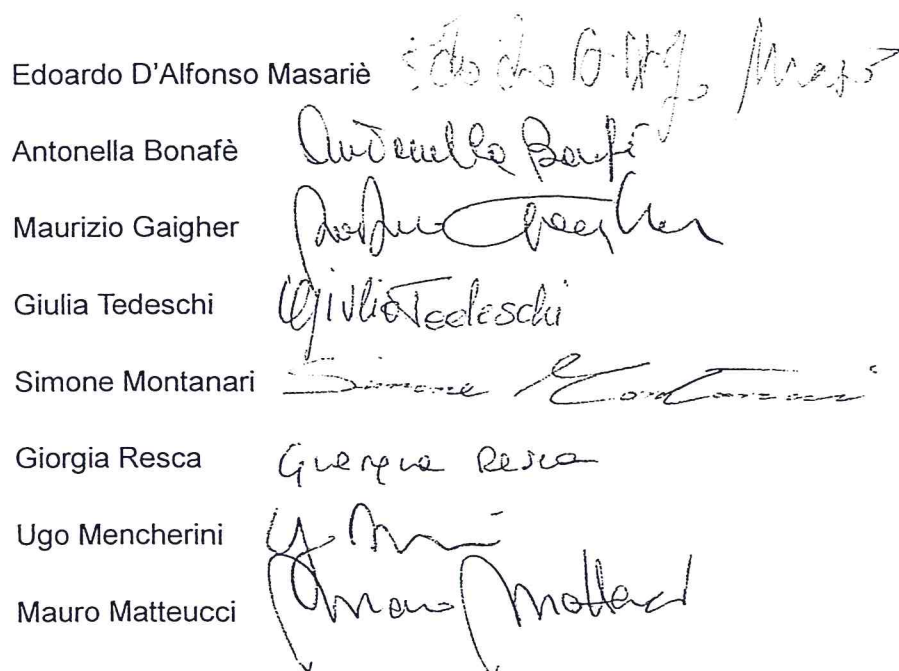 Edoardo D'Alfonso Masariè
Antonella Bonafè Antonella Bonafè
Maurizio Gaigher Gaigher
Giulia Tedeschi Giulia Tedeschi
Simone Montanari Simone Montanari
Giorgia Resca Giorgia Resca
Ugo Mencherini
Mauro Matteucci Mauro